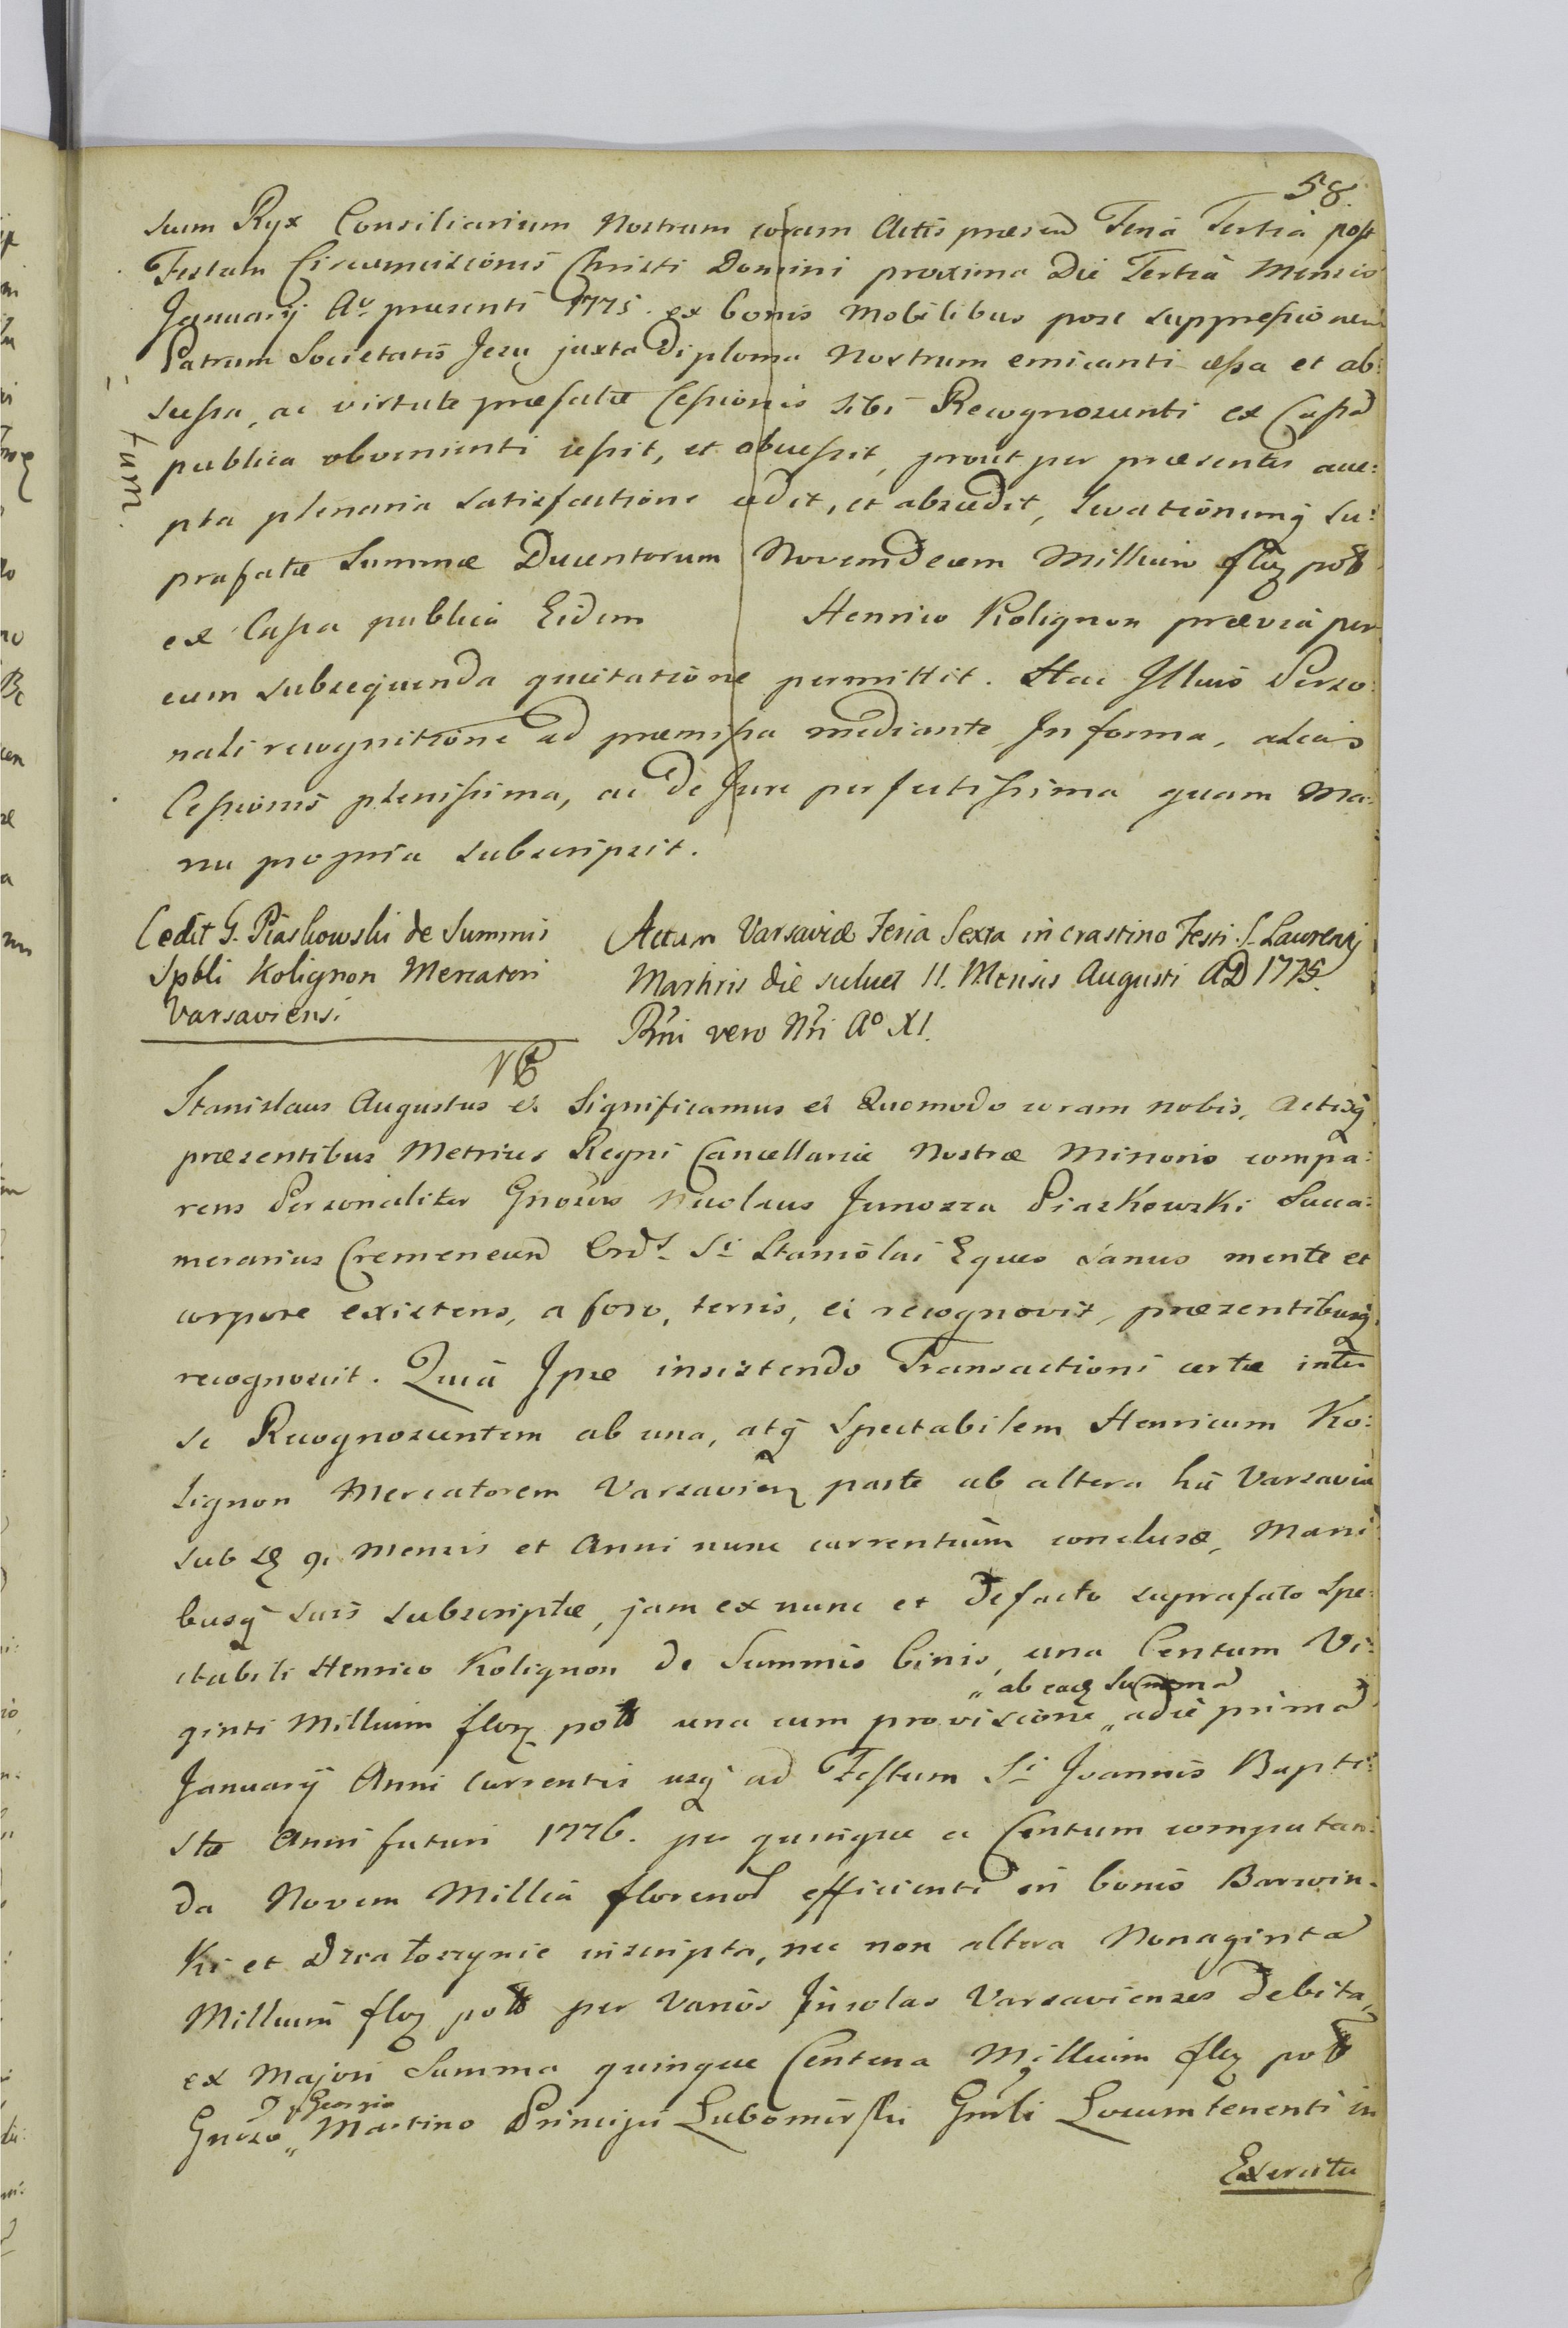 58.
suum Ryx Consiliarium Nostrum coram Actis præsend Feria Tertia post
Festum Circumcisionis Christi Domini proxima Die Tertia Mensis
January Aᵒ præsenti 1775. ex bonis Mobilibus post suppressionem
Patrum Societatis Jesu juxta Diploma Nostrum emicanti cessa et ab:
scessa, ac virtute præfatæ Cessionis sibi Recognoscenti ex Cassa
publica obvenienti cessit, et abscessit, prout per præsentes acce:
pta plenaria satisfactione cedit, et abscedit, levationemq su:
prafatæ Summæ Ducentorum Novemdecem Millium flor pol
ex Cassa publica Eidem Henrico Kolignon prævia per
eum subsequenda quietatione permittit. Hac Illius Perso:
nali recognitione ad præmissa mediante In forma, alias
Cessionis plenissima, ac de Jure perfectissima quam Ma:
nu propria subscripsit.
tum.
Cedit G. Piaskowski de Summis
Spbli Kolignon Mercatori
Varsaviensi
Actum Varsaviæ Feria Sexta in crastino Festi S. Laurenty
Martiris die scilicet 11. Mensis Augusti AD 1775.
Rñi vero Nri Aᵒ XI.
Stanislaus Augustus et Significamus et Quomodo coram nobis, Actisq
præsentibus Metrices Regni Cancellariæ Nostræ Minoris compa:
rens Personaliter Gnosus Nicolaus Junosza Piaskowski Succa:
merarius Cremenecen Ords Si Stanislai Eques sanus mente et
corpore existens, a foro, terris, et recognovit, præsentibusq
recognoscit. Quia Ipse insistendo Transactioni certæ inter
se Recognoscentem ab una, atq Spectabilem Henricum Ko:
lignon Mercatorem Varsavien parte ab altera hic Varsavia
sub 9. Mensis et Anni nunc currentium conclusæ, Mani
busq suis subscriptæ, jam ex nunc et Defacto suprafato Spe:
ctabili Henrico Kolignon de Summis binis, una Centum Vi:
ginti Millium flor pol una cum provisione „ab eadem Summa„ a die prima
January Anni Currentis usq ad Festum Si Joannis Bapti:
stæ Anni futuri 1776. per quinque a Centum computan:
da Novem Millia florenol efficienti in bonis Barwin:
ki et Dziatoszynie inscripta, nec non altera Nonaginta
Millium flor pol per Varios Insolas Varsavienses Debita,
ex Majori Summa quinque Centena Millium flor pol
Gnoso „Georgio„ Martino Principi Lubomirski Gnrli Locumtenenti in
Exercitu